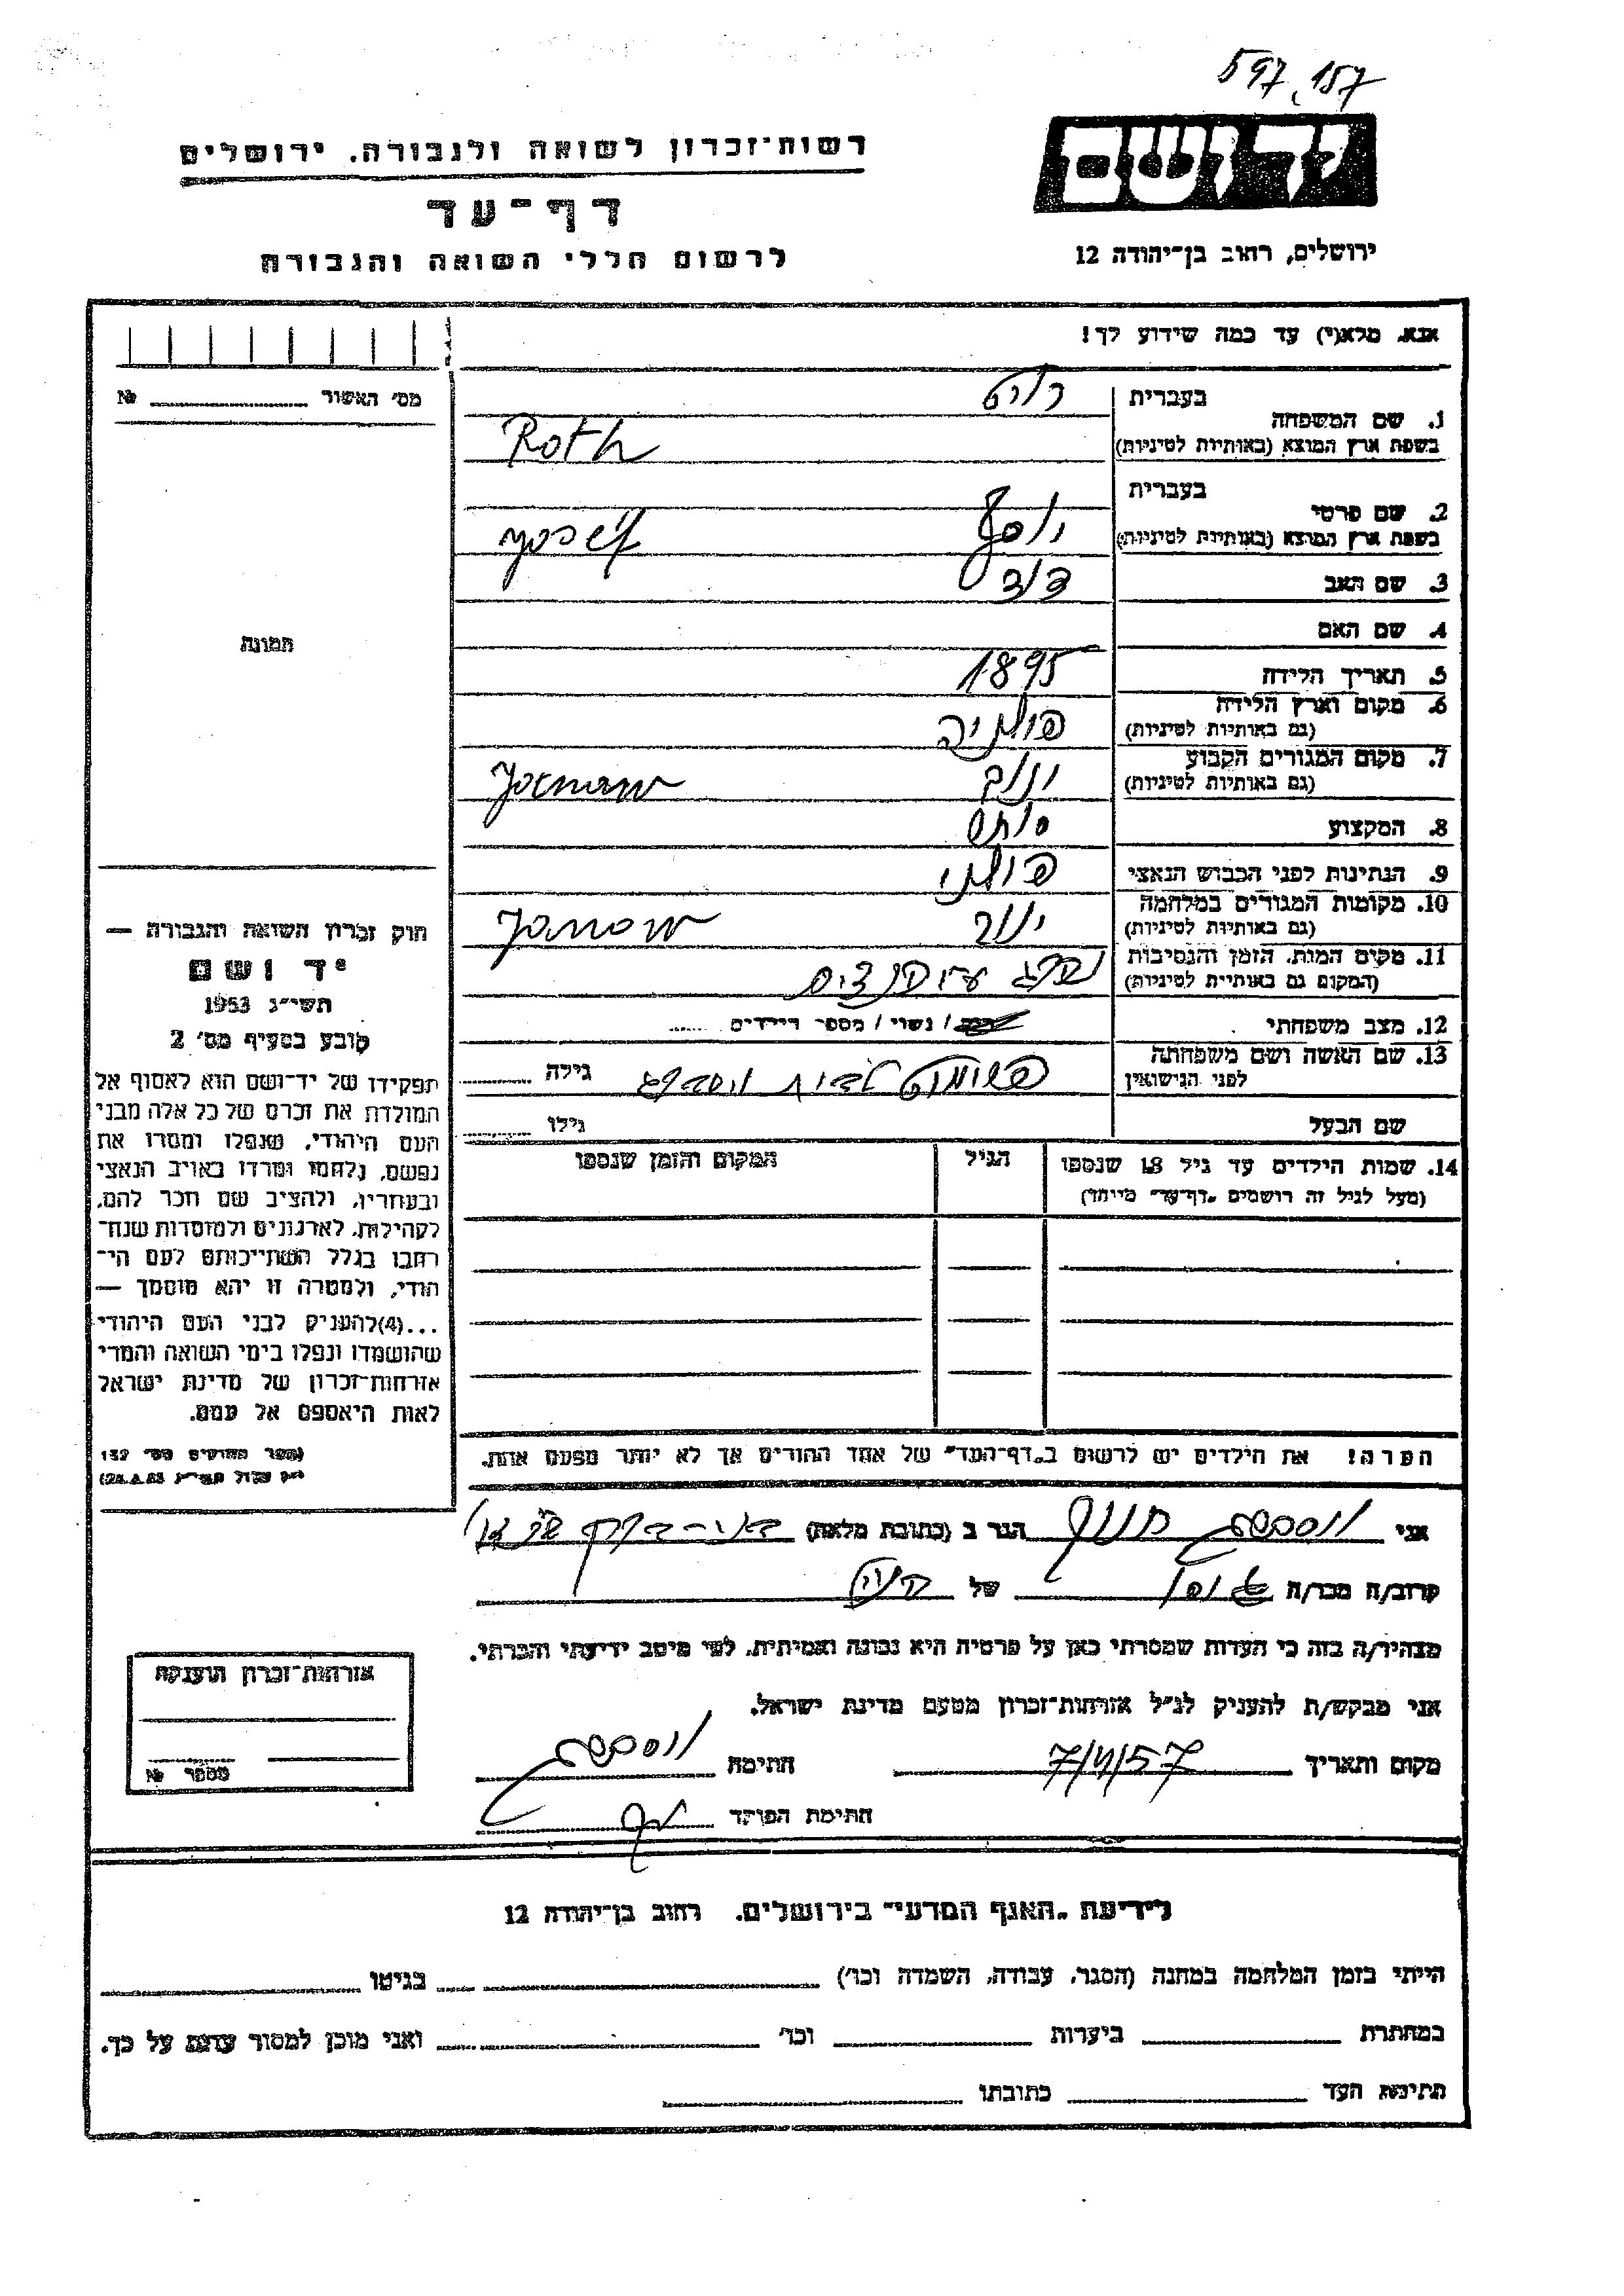 597,157
יד ושם
רשות־זכרון לשואה ולגבורה, ירושלים
דף־עד
לרשום חללי השואה והגבורה
ירושלים, רחוב בן־יהודה 12
אנא, מלא(י) עד כמה שידוע לך!
מס' האשור № 
1. שם המשפחה
בעברית רוט
בשפת ארץ המוצא (באותיות לטיניות) Roth
2. שם פרטי
בעברית יוסף
בשפת ארץ המוצא (באותיות לטיניות) Josef
3. שם האב דוד
4. שם האם
5. תאריך הלידה 1895
6. מקום וארץ הלידה פולניה
(גם באותיות לטיניות)
7. מקום המגורים הקבוע ינוב Janow
(גם באותיות לטיניות)
8. המקצוע סוחר
9. הנתינות לפני הכבוש הנאצי פולני
10. מקומות המגורים במלחמה ינוב Janow
(גם באותיות לטיניות)
11. מקום המות, הזמן והנסיבות נהרג
(המקום גם באותיות לטיניות)
12. מצב משפחתי רוק / נשוי / מספר הילדים
13. שם האשה ושם משפחתה לבית גילה
לפני הנישואין
שם הבעל גילו
14. שמות הילדים עד גיל 18 שנספו הגיל המקום והזמן שנספו
(מעל לגיל זה רושמים „דף־עד" מייוחד)
הערה! את הילדים יש לרשום ב„דף־העד" של אחד ההורים אך לא יותר מפעם אחת.
תמונה
חוק זכרון השואה והגבורה —
יד ושם
תשי"ג 1953
קובע בסעיף מס' 2
תפקידו של יד־ושם הוא לאסוף אל
המולדת את זכרם של כל אלה מבני
העם היהודי, שנפלו ומסרו את
נפשם, נלחמו ומרדו באויב הנאצי
ובעוזריו, ולהציב שם וזכר להם,
לקהילות, לארגונים ולמוסדות שנח־
רבו בגלל השתייכותם לעם הי־
הודי, ולמטרה זו יהא מוסמך —
...(4) להעניק לבני העם היהודי
שהושמדו ונפלו בימי השואה והמרי
אזרחות־זכרון של מדינת ישראל
לאות היאספם אל עמם.
(ספר החוקים מס' 132
אני הגר ב (כתובת מלאה)
קרוב/ה מכר/ה של רוט
מצהיר/ה בזה כי העדות שמסרתי כאן על פרטיה היא נכונה ואמיתית, לפי מיטב ידיעתי והכרתי.
אני מבקש/ת להעניק לנ"ל אזרחות־זכרון מטעם מדינת ישראל.
מקום ותאריך חתימה
חתימת הפוקד
אזרחות־זכרון הוענקה
מספר №
לידיעת „האגף המדעי" בירושלים, רחוב בן־יהודה 12
הייתי בזמן המלחמה במחנה (הסגר, עבודה, השמדה וכו') בגיטו
במחתרת ביערות וכו' ואני מוכן למסור עדות על כך.
חתימת העד כתובתו